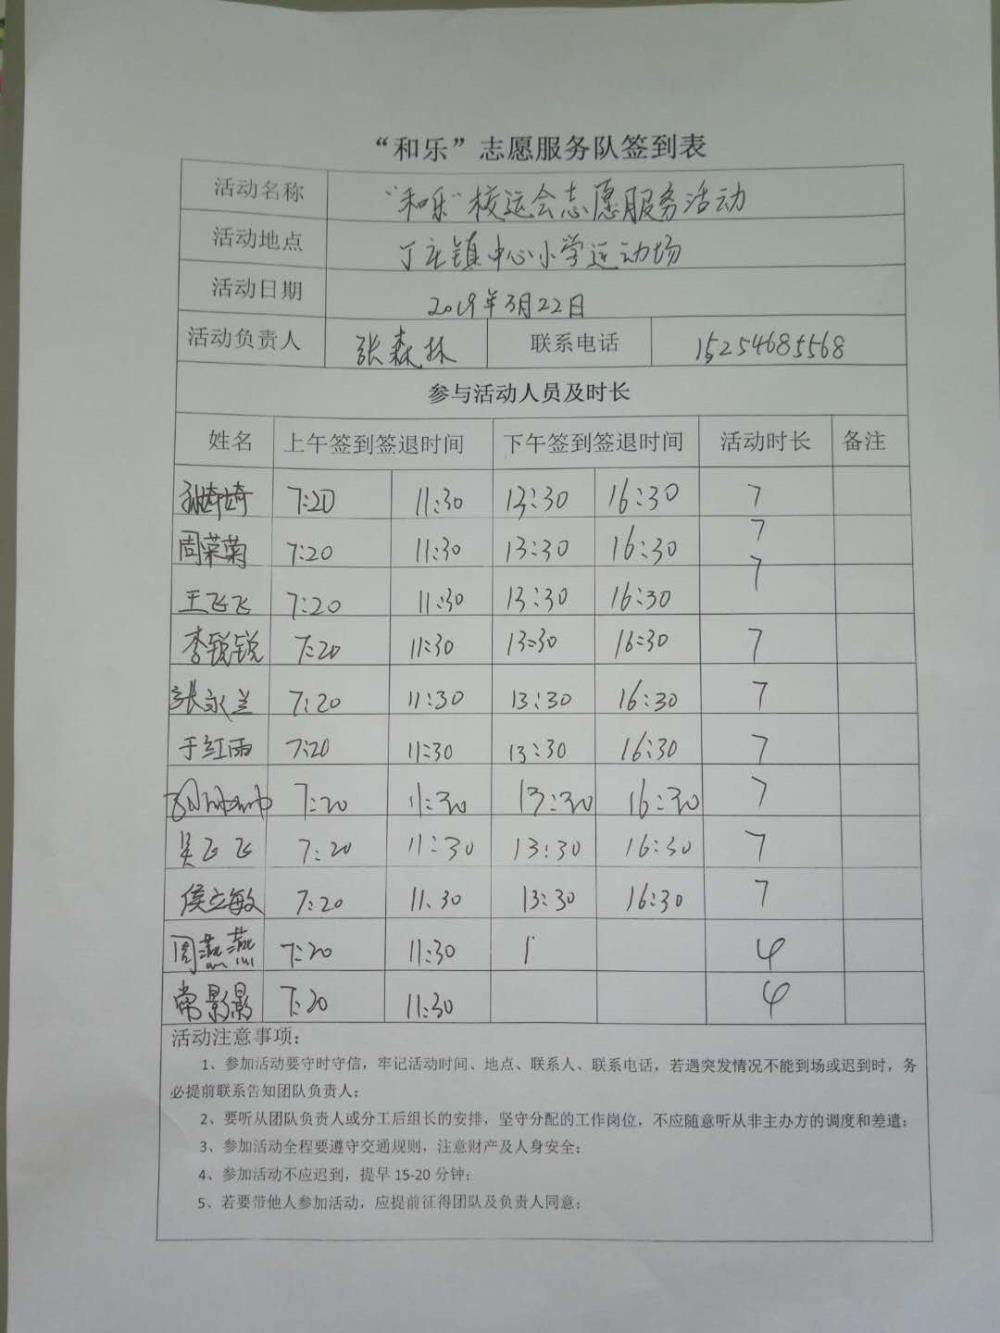 “和乐”志愿服务队签到表
活动名称 “和乐”校运会志愿服务活动
活动地点 丁庄镇中心小学运动场
活动日期 2019年3月22日
活动负责人 张森林 联系电话 15254685568
参与活动人员及时长
姓名 上午签到签退时间 下午签到签退时间 活动时长 备注
孙婷婷 7:20 11:30 13:30 16:30 7
周荣菊 7:20 11:30 13:30 16:30 7
王飞飞 7:20 11:30 13:30 16:30 7
李锐锐 7:20 11:30 13:30 16:30 7
张永兰 7:20 11:30 13:30 16:30 7
于红雨 7:20 11:30 13:30 16:30 7
7:20 11:30 13:30 16:30 7
吴飞飞 7:20 11:30 13:30 16:30 7
侯立敏 7:20 11:30 13:30 16:30 7
周燕燕 7:20 11:30 1 4
常影影 7:20 11:30 4
活动注意事项：
1、参加活动要守时守信，牢记活动时间、地点、联系人、联系电话，若遇突发情况不能到场或迟到时，务
必提前联系告知团队负责人；
2、要听从团队负责人或分工后组长的安排，坚守分配的工作岗位，不应随意听从非主办方的调度和差遣；
3、参加活动全程要遵守交通规则，注意财产及人身安全；
4、参加活动不应迟到，提早 15-20 分钟；
5、若要带他人参加活动，应提前征得团队及负责人同意；